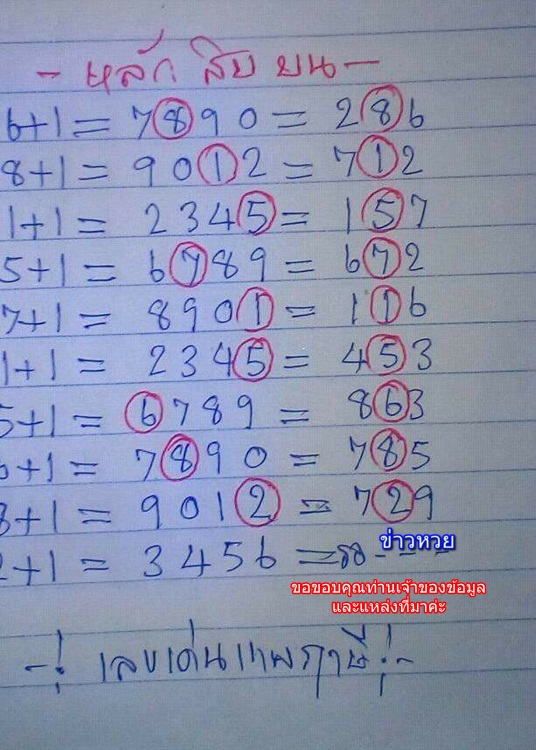 - หลักสิบบน -
6+1 = 7890 = 286
8+1 = 9012 = 712
1+1 = 2345 = 157
5+1 = 6789 = 672
7+1 = 8901 = 116
1+1 = 2345 = 453
5+1 = 6789 = 863
6+1 = 7890 = 785
8+1 = 9012 = 729
2+1 = 3456 = รอ - - -
ข่าวหวย
ขอขอบคุณท่านเจ้าของข้อมูล
และแหล่งที่มาค่ะ
-! เลขเด่นเทพฤาษี !-